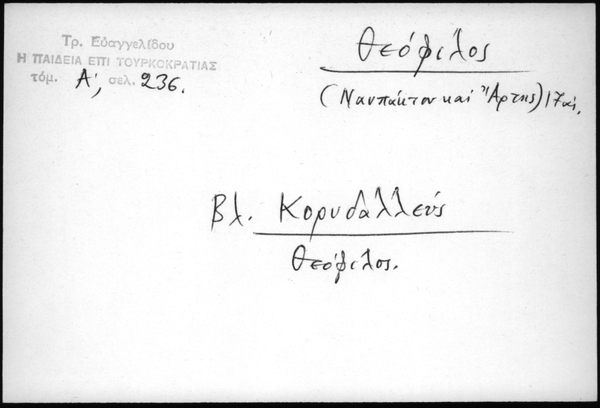 Τρ. Εὐαγγελίδου
Η ΠΑΙΔΕΙΑ ΕΠΙ ΤΟΥΡΚΟΚΡΑΤΙΑΣ
τόμ. Α', σελ. 236.
Θεόφιλος
(Ναυπάκτου καὶ Ἄρτης) 17 αἰ.
Βλ. Κορυδαλλεύς
Θεόφιλος.